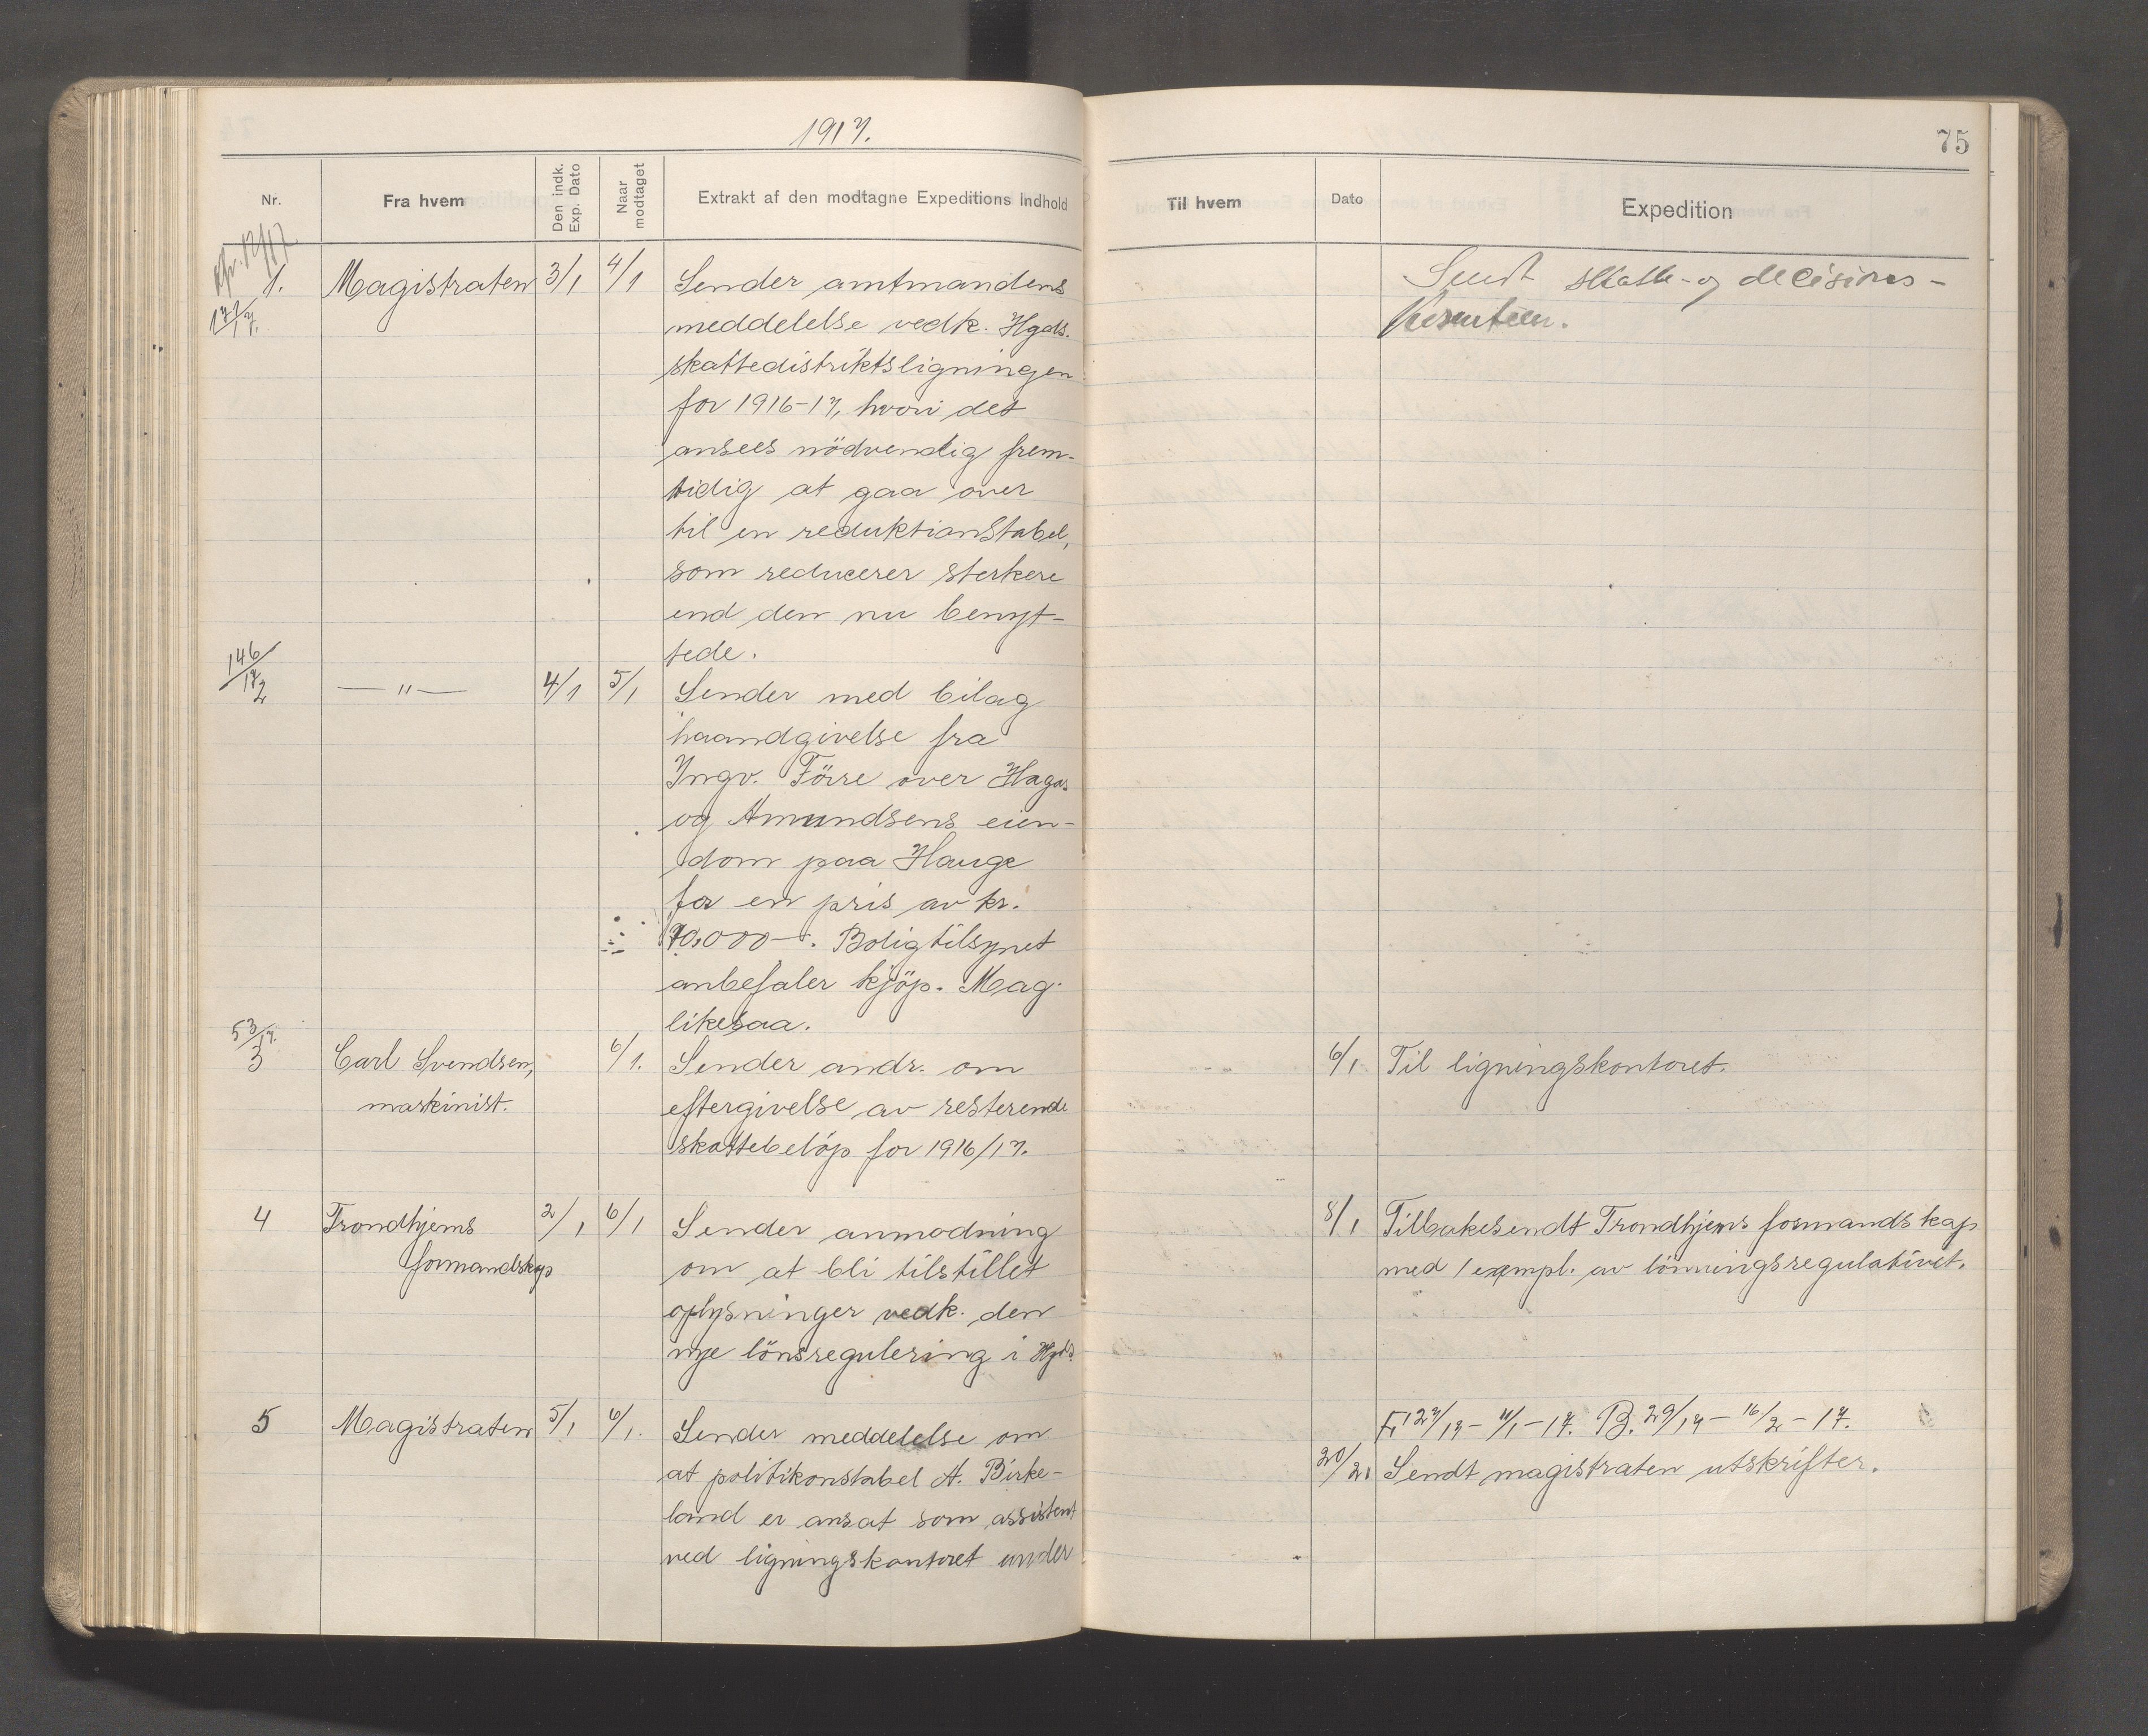 1917.
75
Nr.
Fra hvem
Den indk. Exp. Dato
Naar modtaget
Extrakt af den modtagne Expeditions Indhold
Til hvem
Dato
Expedition
1. Magistraten 3/1 4/1 Sender amtmandens
meddelelse vedk. Hgds.
skattedistriktsligningen
for 1916-17, hvori det
ansees nödvendig frem-
tidig at gaa over
til en reduktionstabel,
som reducerer sterkere
end den nu benyt-
tede.
Sendt skatte- og decisions-
146/17
2 —"— 4/1 5/1 Sender med bilag
haandgivelse fra
Ingv. Förre over Hagas
og Amundsens eien-
dom paa Hauge
for en pris av kr.
70,000-. Boligtilsynet
anbefaler kjöp. Mag.
likesaa.
53/17.
3 Carl Svendsen, 6/1. Sender andr. om
maskinist. eftergivelse av resterende
skattebelöp for 1916/17.
6/1 Til ligningskontoret.
4 Trondhjems 2/1 6/1 Sender anmodning
formandskap om at bli tilstillet
oplysninger vedk. den
nye lönsregulering i Hgds.
8/1 Tilbakesendt Trondhjems formandskap
med 1 exempl. av lönningsregulativet.
5 Magistraten 5/1 6/1. Sender meddelelse om
at politikonstabel A. Birke-
land er ansat som assistent
ved ligningskontoret under
F. 127/17 - 11/1 - 17. B. 29/17 - 16/2 - 17.
20/2. Sendt magistraten utskrifter.